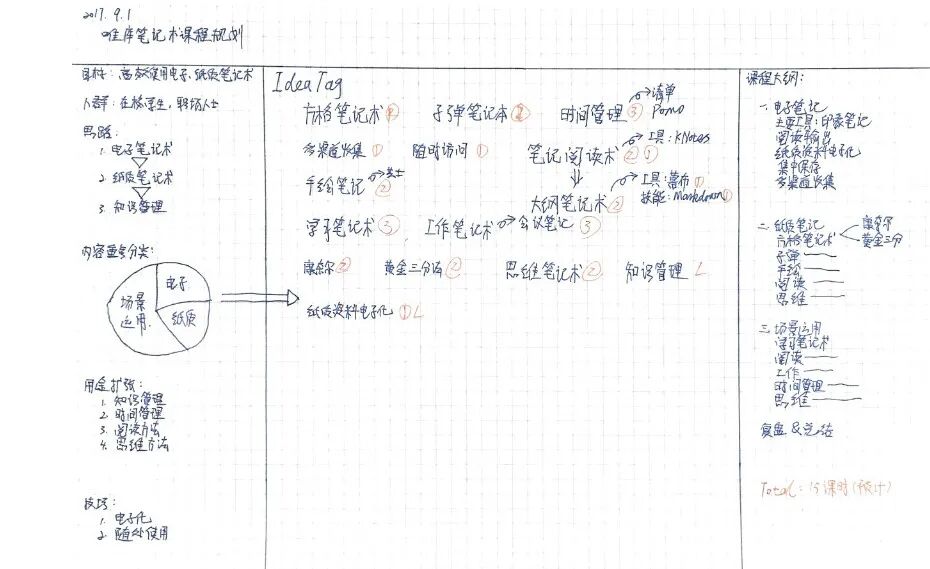 2017.9.1
唯库笔记术课程规划
目标:高效使用电子、纸质笔记术
人群:在校学生,职场人士
思路:
1. 电子笔记术
2. 纸质笔记术
3. 知识管理
内容重要分类:
电子
场景运用
纸质
用途扩张:
1. 知识管理
2. 时间管理
3. 阅读方法
4. 思维方法
技巧:
1. 电子化
2. 随处使用
IdeaTag
方格笔记术② 子弹笔记本② 时间管理③ 清单 Pomo
多渠道收集① 随时访问① 笔记阅读术②① 工具:KNotes
手绘笔记②
大纲笔记术② 工具:幕布① 技能:Markdown①
学习笔记术③ 工作笔记术 会议笔记③
康奈尔② 黄金三分法② 思维笔记术② 知识管理 L
纸质资料电子化①L
课程大纲:
一. 电子笔记
主要工具:印象笔记
阅读+输出
纸质资料电子化
集中保存
多渠道收集
二. 纸质笔记
方格笔记术 康奈尔 黄金三分
子弹——
手绘——
阅读——
思维——
三. 场景运用
学习笔记术
阅读——
工作——
时间管理——
思维——
复盘&总结
Total:15课时(预计)